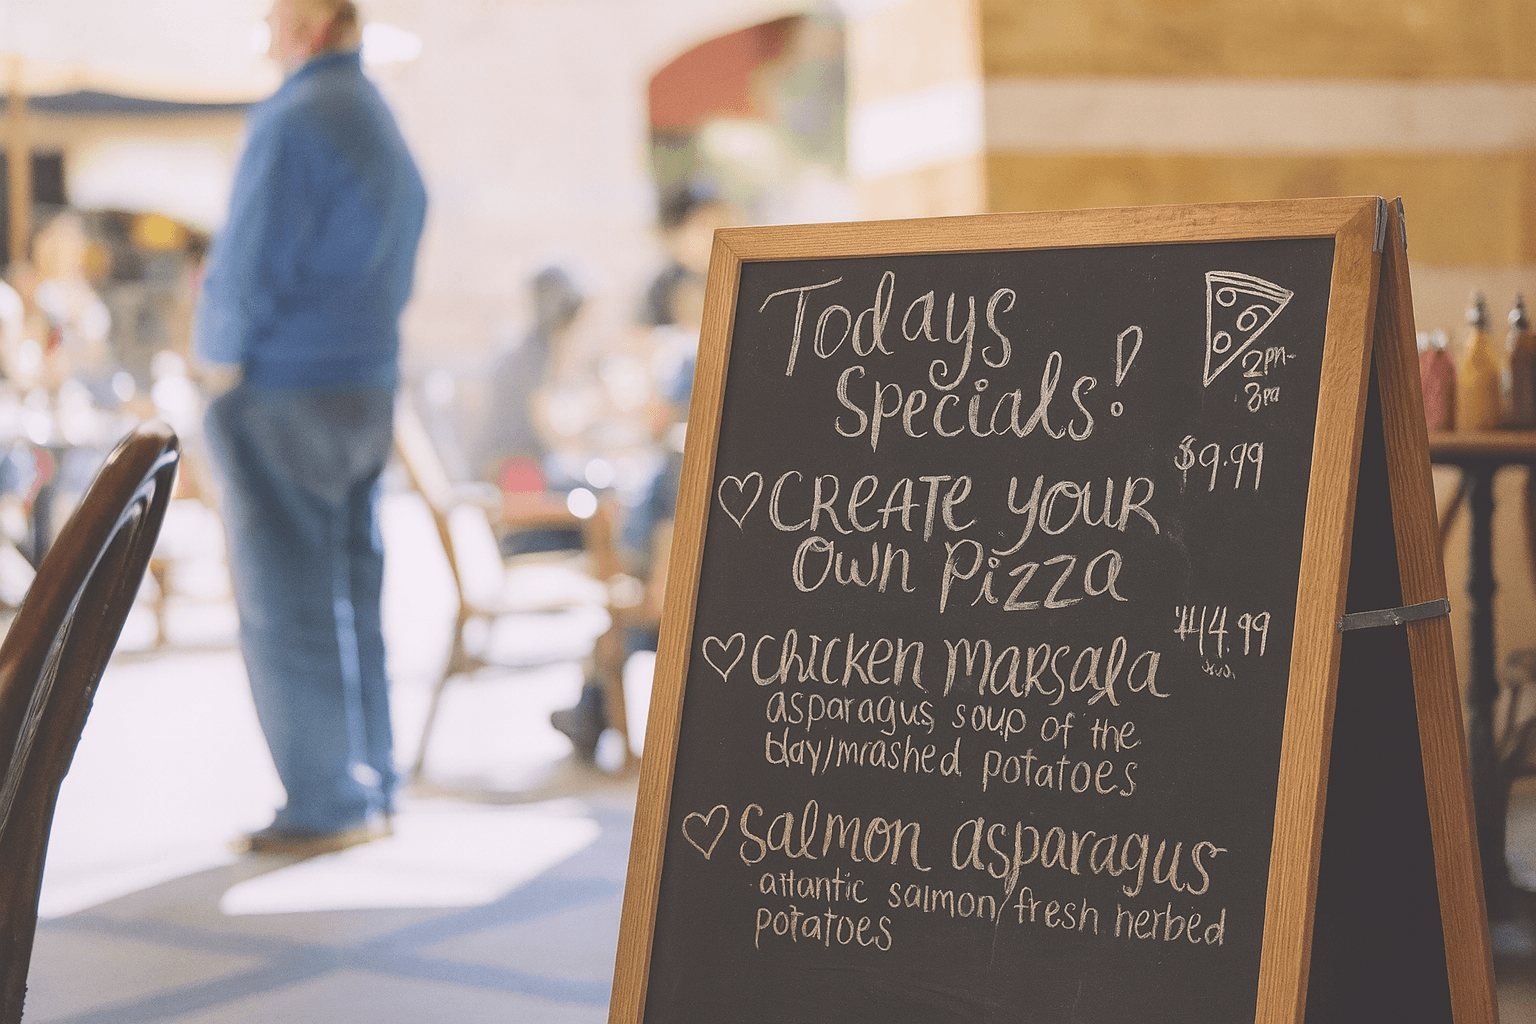 Todays
Specials!
2pm-
3pm
$9.99
♡ CREATE YOUR
Own Pizza
$14.99
♡ Chicken Marsala
asparagus, soup of the
day/mrashed potatoes
♡ Salmon asparagus
atlantic salmon/fresh herbed
potatoes